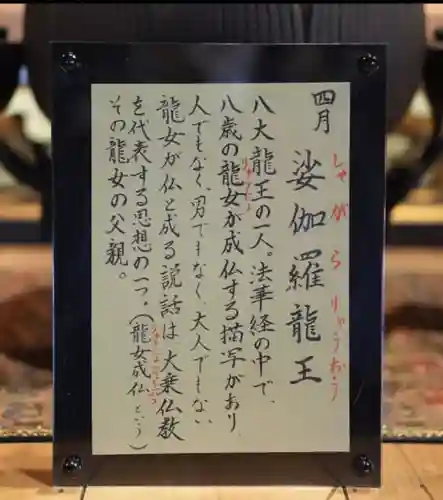 四月
娑伽羅龍王
しゃがらりゅうおう
八大龍王の一人。法華経の中で、
八歳の龍女が成仏する描写があり、
りゅうにょ
人でもなく、男でもなく、大人でもない
龍女が仏と成る説話は大乗仏教
を代表する思想の一つ。（龍女成仏という）
りゅうにょじょうぶつ
その龍女の父親。